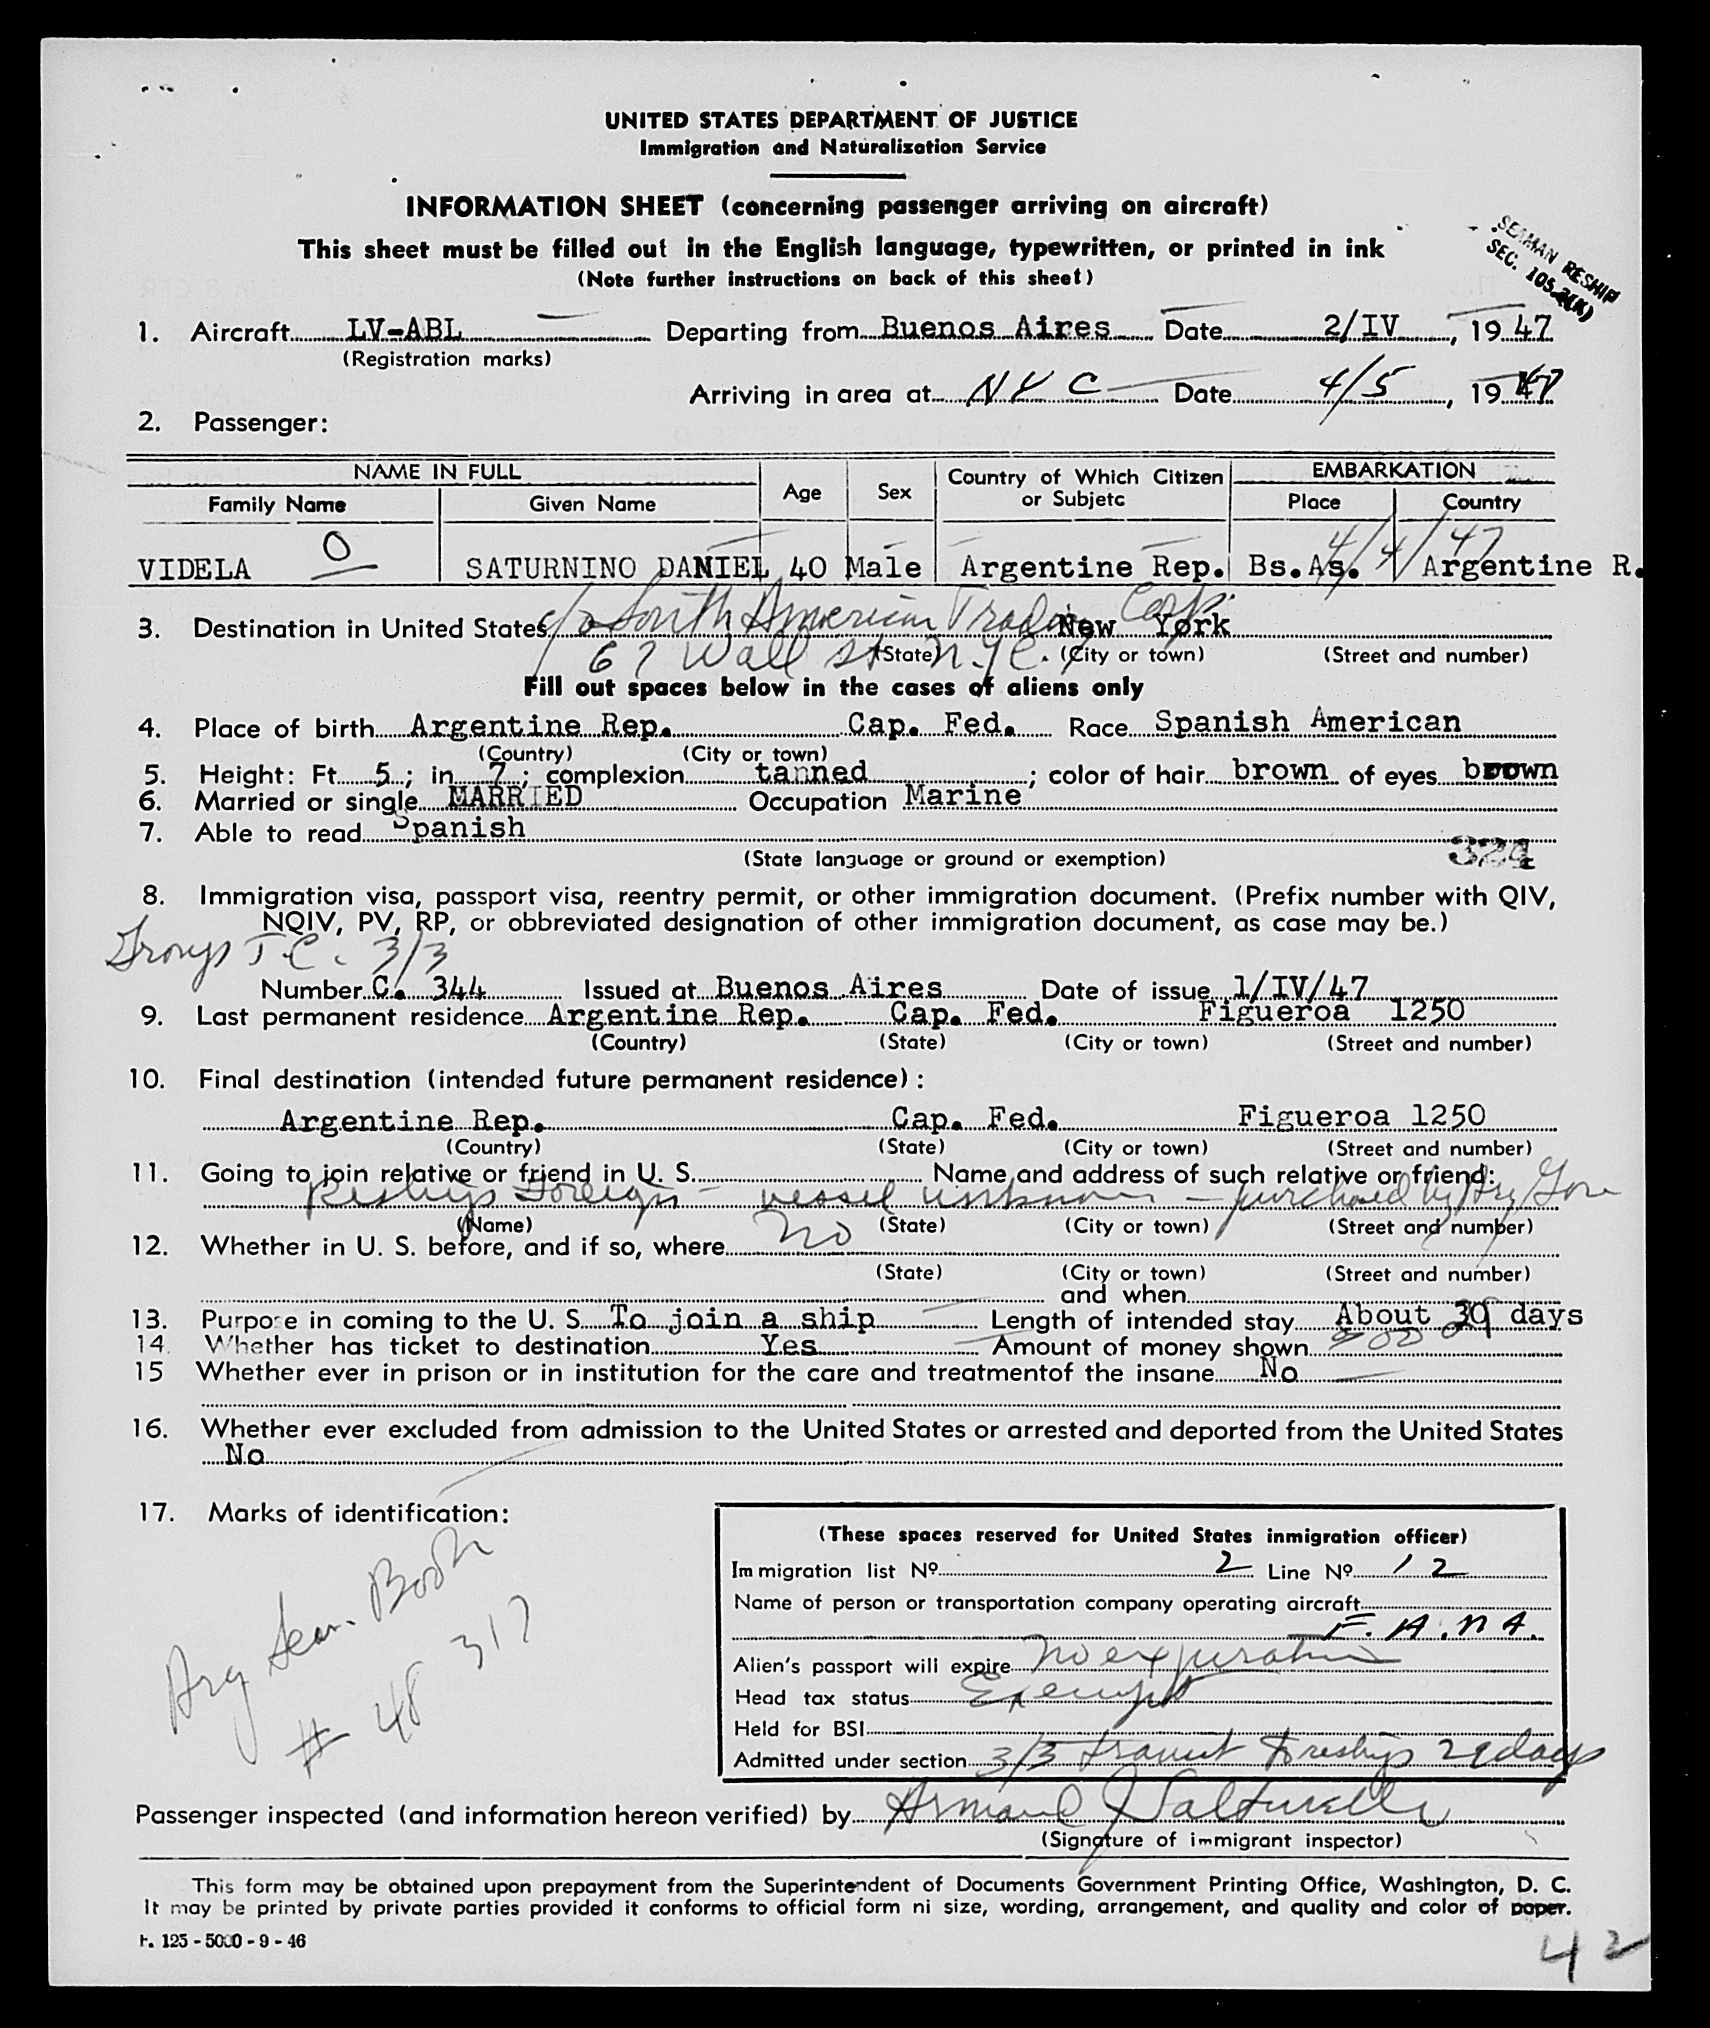 UNITED STATES DEPARTMENT OF JUSTICE
Immigration and Naturalization Service
INFORMATION SHEET (concerning passenger arriving on aircraft)
This sheet must be filled out in the English language, typewritten, or printed in ink
(Note further instructions on back of this sheet)
SEAMAN RESHIP
SEC. 105.
1. Aircraft LV-ABL Departing from Buenos Aires Date 2/IV, 1947
(Registration marks)
Arriving in area at NYC Date 4/5, 1947
2. Passenger:
NAME IN FULL Age Sex Country of Which Citizen or Subjetc EMBARKATION
Family Name Given Name Place Country
4/4/47
VIDELA O SATURNINO DANIEL 40 Male Argentine Rep. Bs.As. Argentine R.
c/o South American Trading Corp.
3. Destination in United States New York
67 Wall St N.Y.C. (State) (City or town) (Street and number)
Fill out spaces below in the cases of aliens only
4. Place of birth Argentine Rep. Cap. Fed. Race Spanish American
(Country) (City or town)
5. Height: Ft. 5; in 7; complexion tanned; color of hair brown of eyes brown
6. Married or single MARRIED Occupation Marine
7. Able to read Spanish
(State language or ground or exemption) 324
8. Immigration visa, passport visa, reentry permit, or other immigration document. (Prefix number with QIV,
NQIV, PV, RP, or obbreviated designation of other immigration document, as case may be.)
T.C. 3/3
Number C. 344 Issued at Buenos Aires Date of issue 1/IV/47
9. Last permanent residence Argentine Rep. Cap. Fed. Figueroa 1250
(Country) (State) (City or town) (Street and number)
10. Final destination (intended future permanent residece) :
Argentine Rep. Cap. Fed. Figueroa 1250
(Country) (State) (City or town) (Street and number)
11. Going to join relative or friend in U. S. Name and address of such relative or friend:
Reships Foreign - vessel unknown - purchased by Arg Gov
(Name) (State) (City or town) (Street and number)
12. Whether in U. S. before, and if so, where No
(State) (City or town) (Street and number)
and when
13. Purpose in coming to the U. S. To join a ship Length of intended stay About 29 days
14. Whether has ticket to destination Yes Amount of money shown
15 Whether ever in prison or in institution for the care and treatmentof the insane No
16. Whether ever excluded from admission to the United States or arrested and deported from the United States
No
17. Marks of identification:
Arg Sean. Book
# 48 317
(These spaces reserved for United States inmigration officer)
Immigration list Nº 2 Line Nº 12
Name of person or transportation company operating aircraft
F.A.N.A.
Alien's passport will expire No expiration
Head tax status Exempt
Held for BSI
Admitted under section 3/3 transit to reship 29 days
Passenger inspected (and information hereon verified) by Armand J
(Signature of immigrant inspector)
This form may be obtained upon prepayment from the Superintendent of Documents Government Printing Office, Washington, D. C.
It may be printed by private parties provided it conforms to official form ni size, wording, arrangement, and quality and color of paper.
F. 125 - 5000 - 9 - 46
42